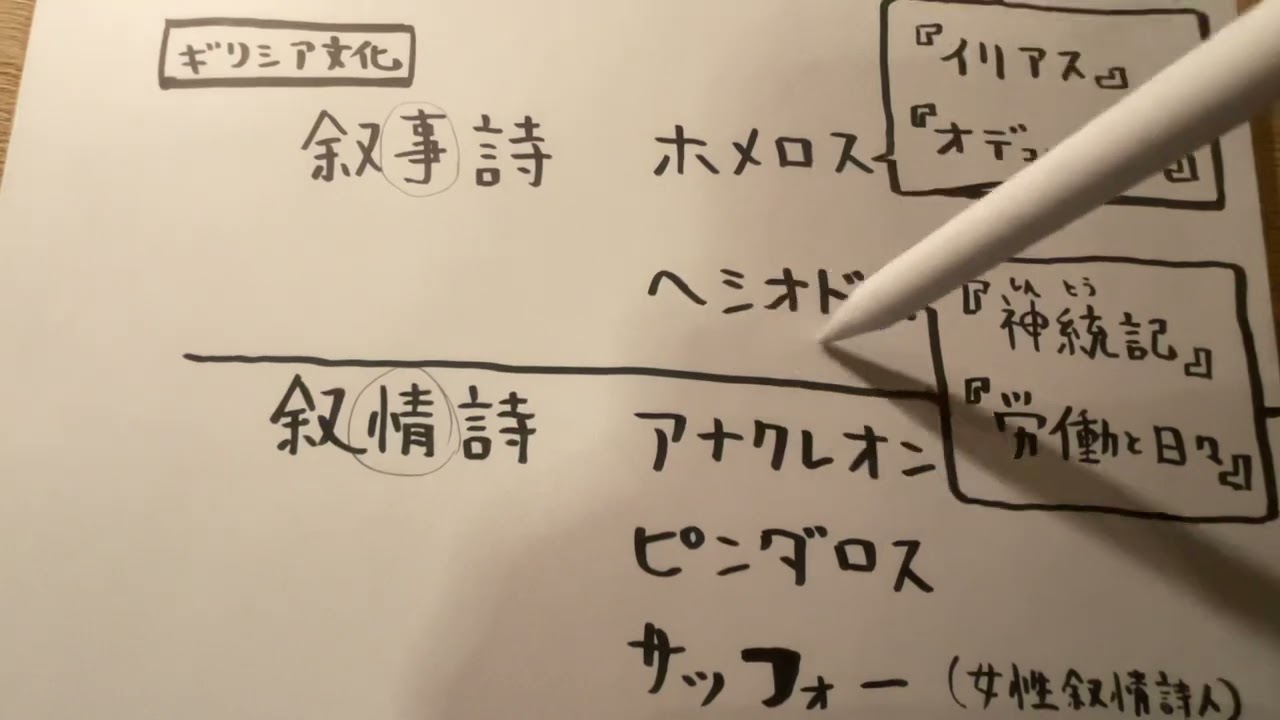 ギリシア文化
叙事詩
ホメロス
『イリアス』
『オデュ 』
ヘシオド
『神統記』
しんとう
『労働と日々』
叙情詩
アナクレオン
ピンダロス
サッフォー(女性叙情詩人)